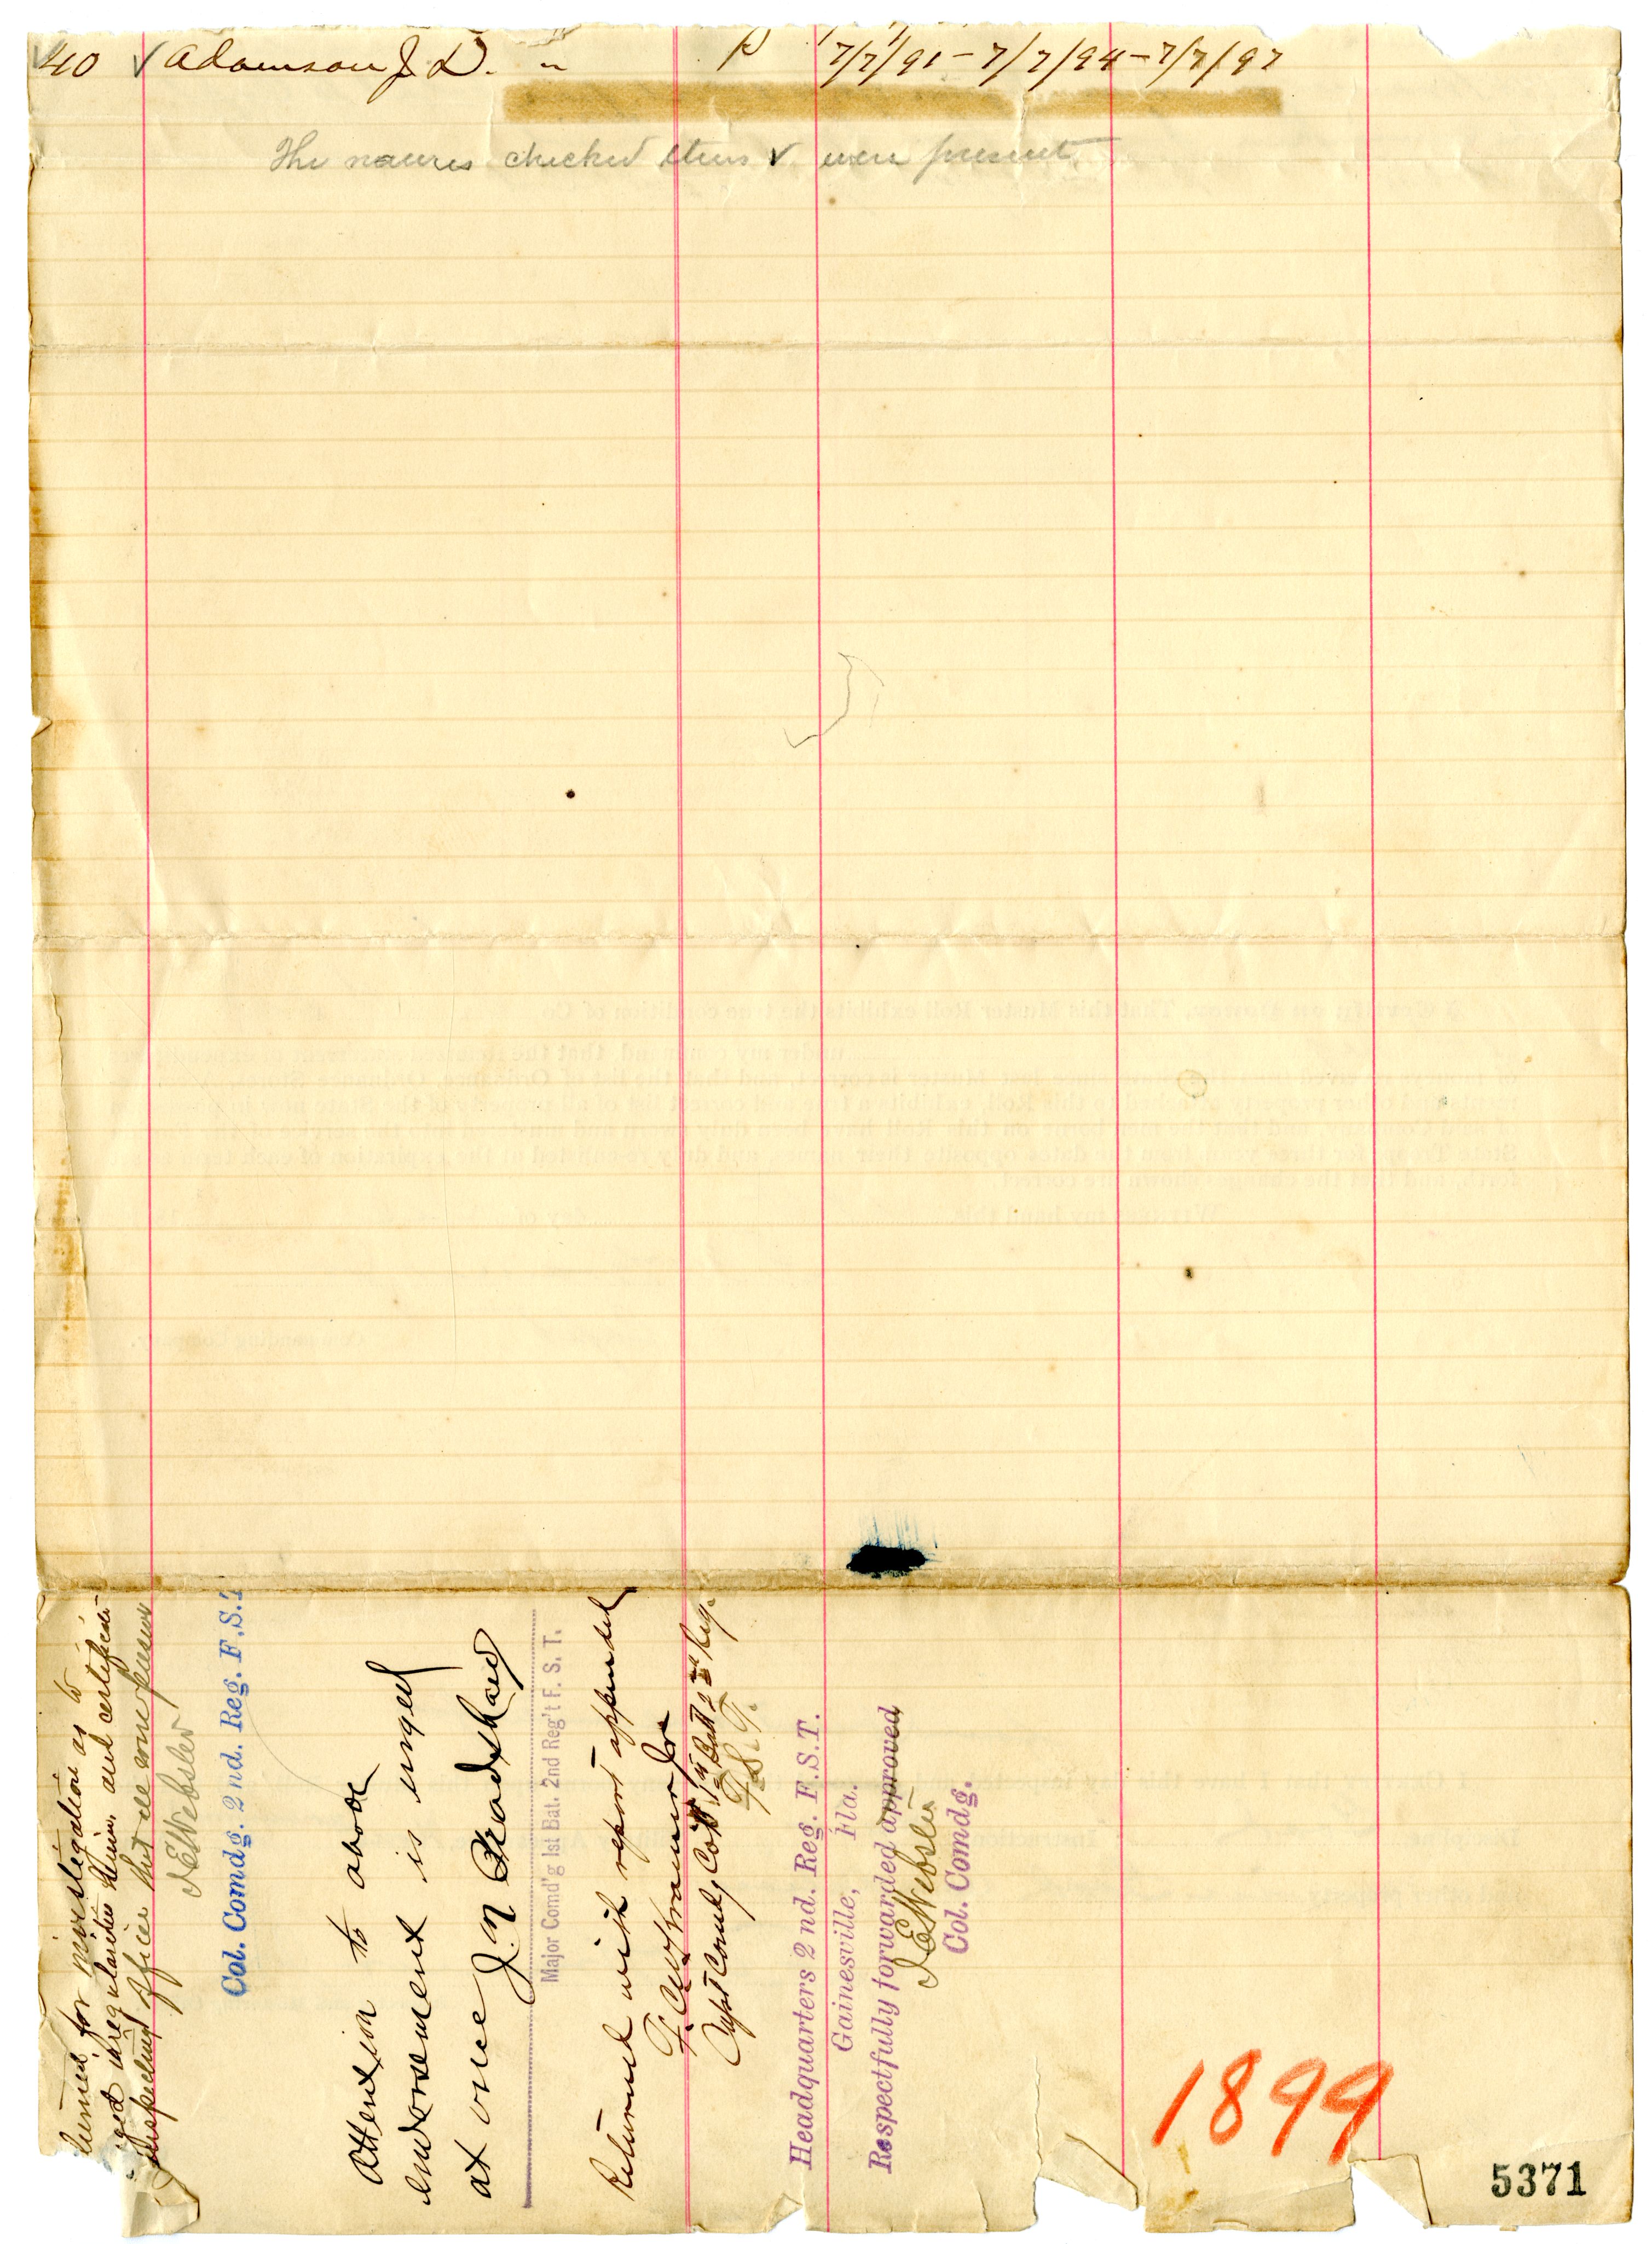 ✓ 40 ✓ Adamson J. D. " P 7/7/91 - 7/7/94 - 7/7/97
The names checked thus ✓ were present.
turned for investigation as to
irregularities therein and certificate
inspecting officer that all were present
J E Webster
Col. Comdg. 2nd. Reg. F.S.T
Attention to above
endorsement is urged
at once J. N. Bradshaw
Major Comd'g 1st Bat. 2nd Reg't F. S. T.
Returned with report appended
Capt Comdg Co 1st Batt 2nd Reg.
F.S.T.
Headquarters 2nd. Reg. F.S.T.
Gainesville, Fla.
Respectfully forwarded approved
J E Webster
Col. Comdg.
1899
5371